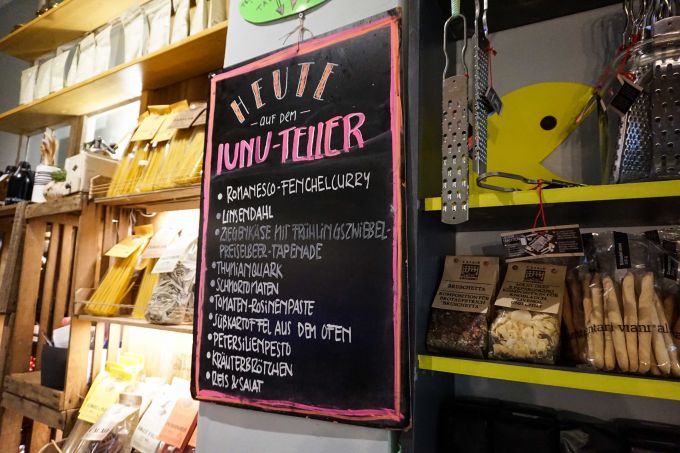 HEUTE
AUF DEM
IUNU-TELLER
• ROMANESCO-FENCHELCURRY
• LINSENDAHL
• ZIEGENKÄSE MIT FRÜHLINGSZWIEBEL-
PREISELBEER-TAPENADE
• THYMIANQUARK
• SCHMORTOMATEN
• TOMATEN-ROSINENPASTE
• SÜßKARTOFFEL AUS DEM OFEN
• PETERSILIENPESTO
• KRÄUTERBRÖTCHEN
• REIS & SALAT
BRUSCHETTA